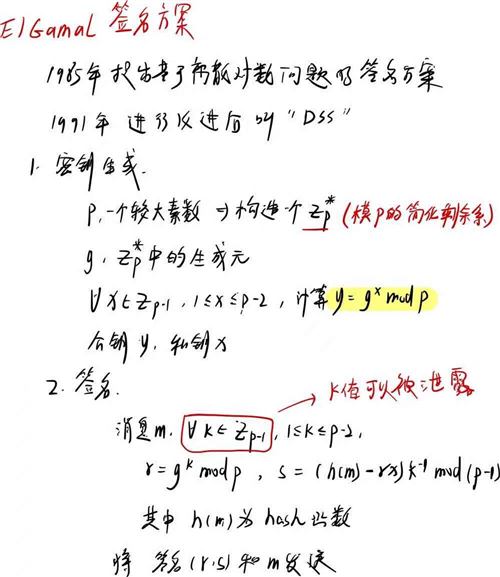 ElGamal 签名方案
1985年 提出基于离散对数问题的签名方案
1991年 进行改进后的"DSS"
1. 密钥生成.
p, 一个较大素数 → 构造一个 Zp* (模p的简化剩余系)
g, Zp*中的生成元
∀x∈Zp-1, 1≤x≤p-2, 计算 y=g^x mod p
公钥 y, 私钥 x
2. 签名.
K值可以被泄露
消息m. ∀k∈Zp-1, 1≤k≤p-2,
r=g^k mod p, s=(h(m)-rx)k^-1 mod(p-1)
其中 h(m)为hash函数
将 签名(r,s)和m发送